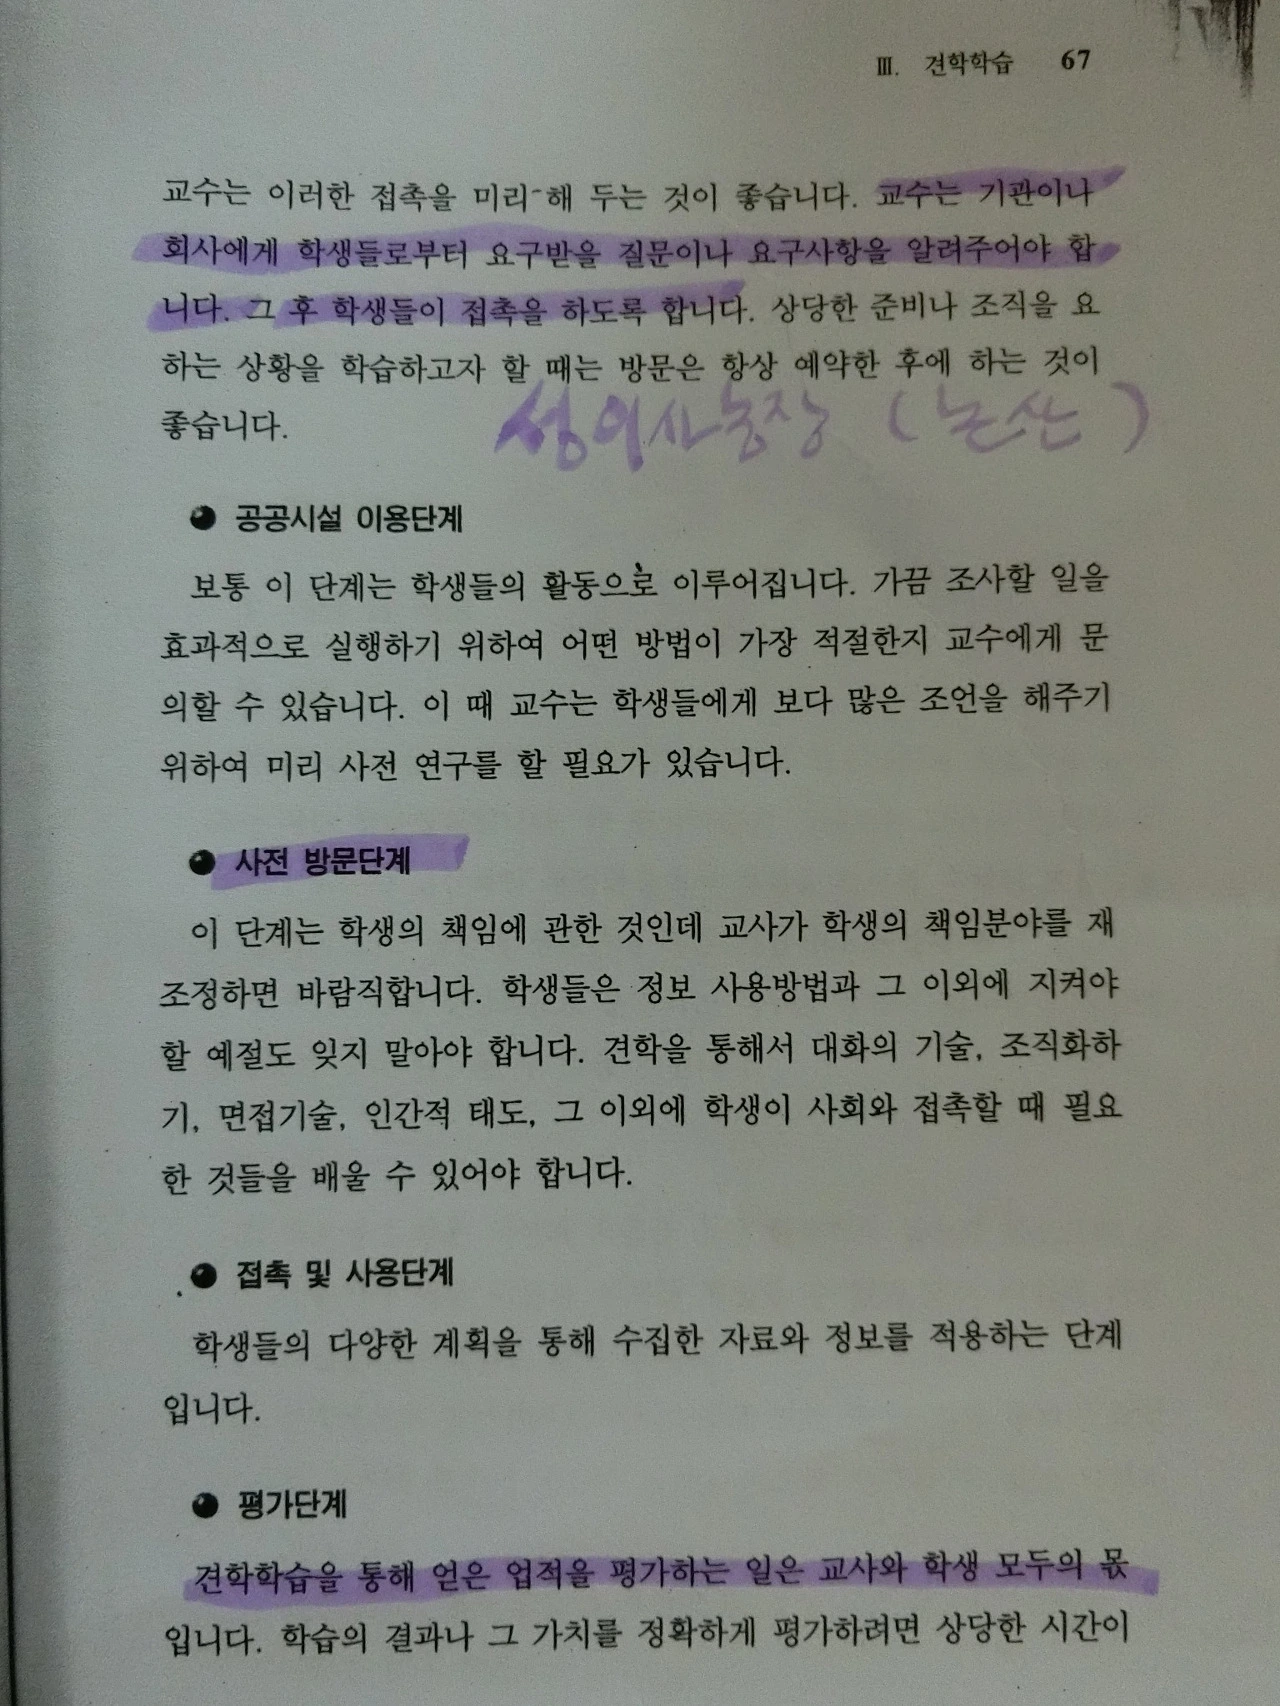 Ⅲ. 견학학습 67
교수는 이러한 접촉을 미리 해 두는 것이 좋습니다. 교수는 기관이나
회사에게 학생들로부터 요구받을 질문이나 요구사항을 알려주어야 합
니다. 그 후 학생들이 접촉을 하도록 합니다. 상당한 준비나 조직을 요
하는 상황을 학습하고자 할 때는 방문은 항상 예약한 후에 하는 것이
좋습니다.
(논산)
● 공공시설 이용단계
보통 이 단계는 학생들의 활동으로 이루어집니다. 가끔 조사할 일을
효과적으로 실행하기 위하여 어떤 방법이 가장 적절한지 교수에게 문
의할 수 있습니다. 이 때 교수는 학생들에게 보다 많은 조언을 해주기
위하여 미리 사전 연구를 할 필요가 있습니다.
● 사전 방문단계
이 단계는 학생의 책임에 관한 것인데 교사가 학생의 책임분야를 재
조정하면 바람직합니다. 학생들은 정보 사용방법과 그 이외에 지켜야
할 예절도 잊지 말아야 합니다. 견학을 통해서 대화의 기술, 조직화하
기, 면접기술, 인간적 태도, 그 이외에 학생이 사회와 접촉할 때 필요
한 것들을 배울 수 있어야 합니다.
● 접촉 및 사용단계
학생들의 다양한 계획을 통해 수집한 자료와 정보를 적용하는 단계
입니다.
● 평가단계
견학학습을 통해 얻은 업적을 평가하는 일은 교사와 학생 모두의 몫
입니다. 학습의 결과나 그 가치를 정확하게 평가하려면 상당한 시간이